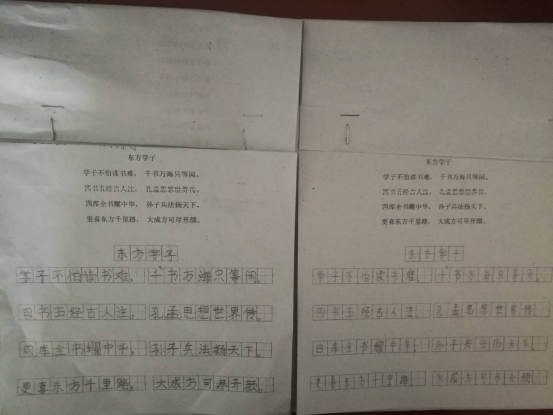 东方学子
学子不怕读书难， 千书万海只等闲。
四书五经古人注， 孔孟思想世界传。
四库全书耀中华， 孙子兵法扬天下。
更喜东方千里路， 大成方可尽开颜。
东方学子
学子不怕读书难， 千书万海只等闲。
四书五经古人注， 孔孟思想世界传。
四库全书耀中华， 孙子兵法扬天下。
更喜东方千里路， 大成方可尽开颜。
东方学子
学子不怕读书难， 千书万海只等闲。
四书五经古人注， 孔孟思想世界传。
四库全书耀中华， 孙子兵法扬天下。
更喜东方千里路， 大成方可尽开颜。
东方学子
学子不怕读书难， 千书万海只等闲。
四书五经古人注， 孔孟思想世界传。
四库全书耀中华， 孙子兵法扬天下。
更喜东方千里路， 大成方可尽开颜。